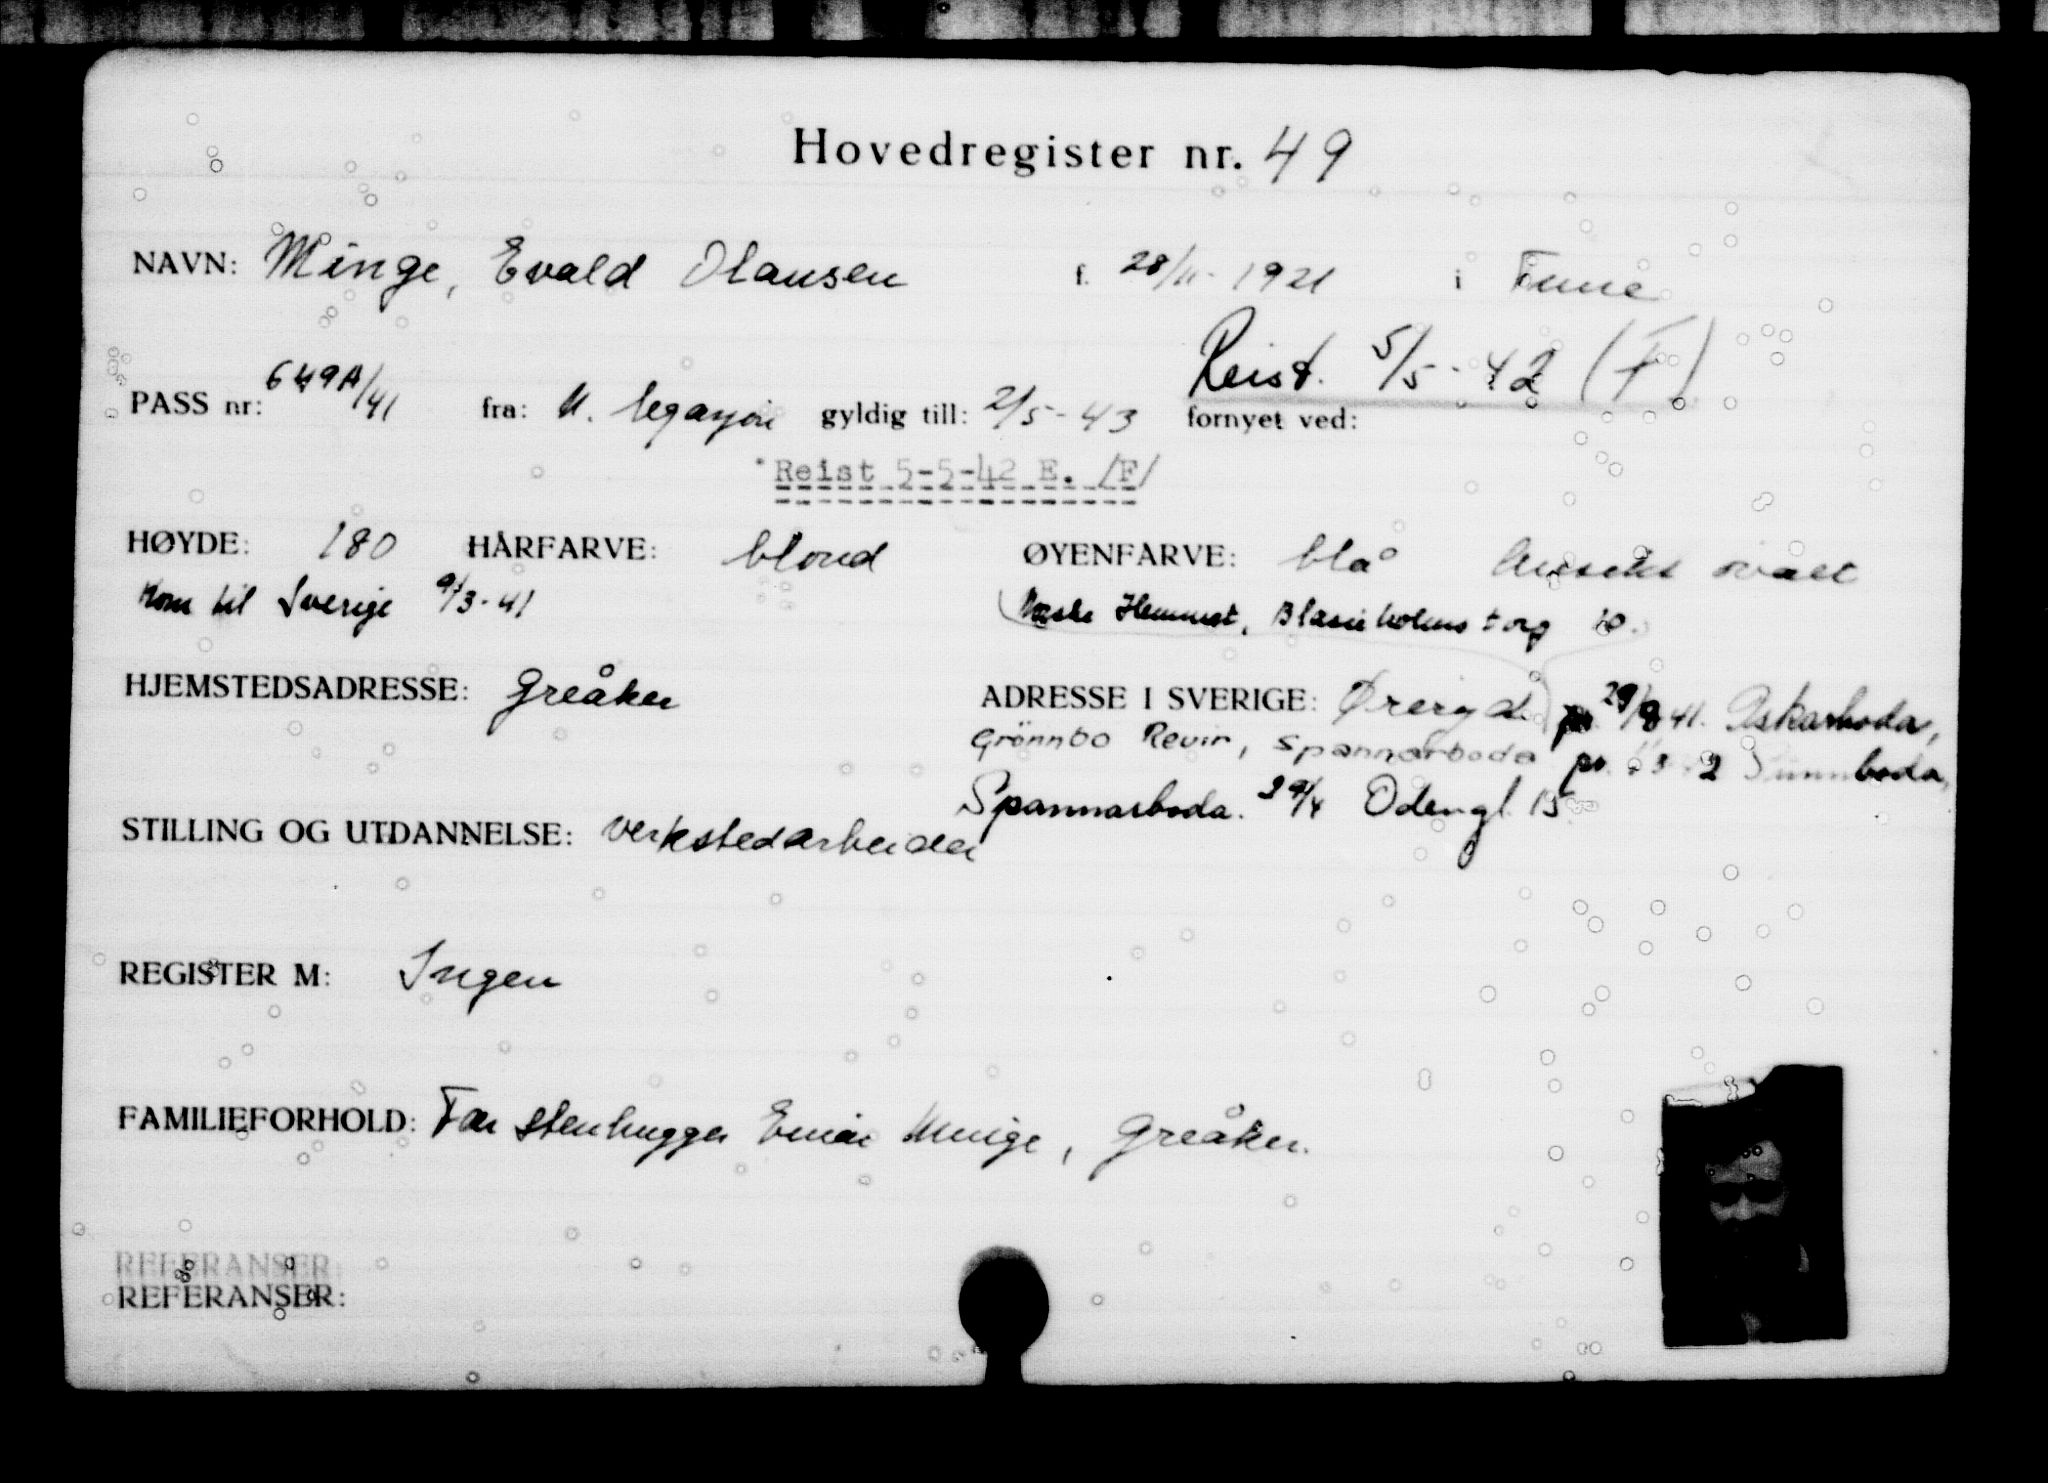 Hovedregister nr. 49
NAVN: Minge, Evald Olausen f. 28/11-1921 i Tune
Reist. 5/5-42 (F)
PASS nr: 649A/41 fra: N. legasjon gyldig till: 2/5-43 fornyet ved:
Reist 5-5-42 E. /F/
HØYDE: 180 HÅRFARVE: blond ØYENFARVE: blå Ansikt ovalt
Kom til Sverige 9/3-41 Norske Hemmet, Blasieholmstorg 10.
HJEMSTEDSADRESSE: Greåker ADRESSE I SVERIGE: Øreryd pr. 29/8 41. Askarboda,
Grönnbo Revir, Spannarboda pr. boda,
Spannarboda. 29/4 Odengt. 15
STILLING OG UTDANNELSE: Verkstedarbeider
REGISTER M: Ingen
FAMILIEFORHOLD: Far stenhugger Einar Minge, Greåker.
REFERANSER:
REFERANSER: